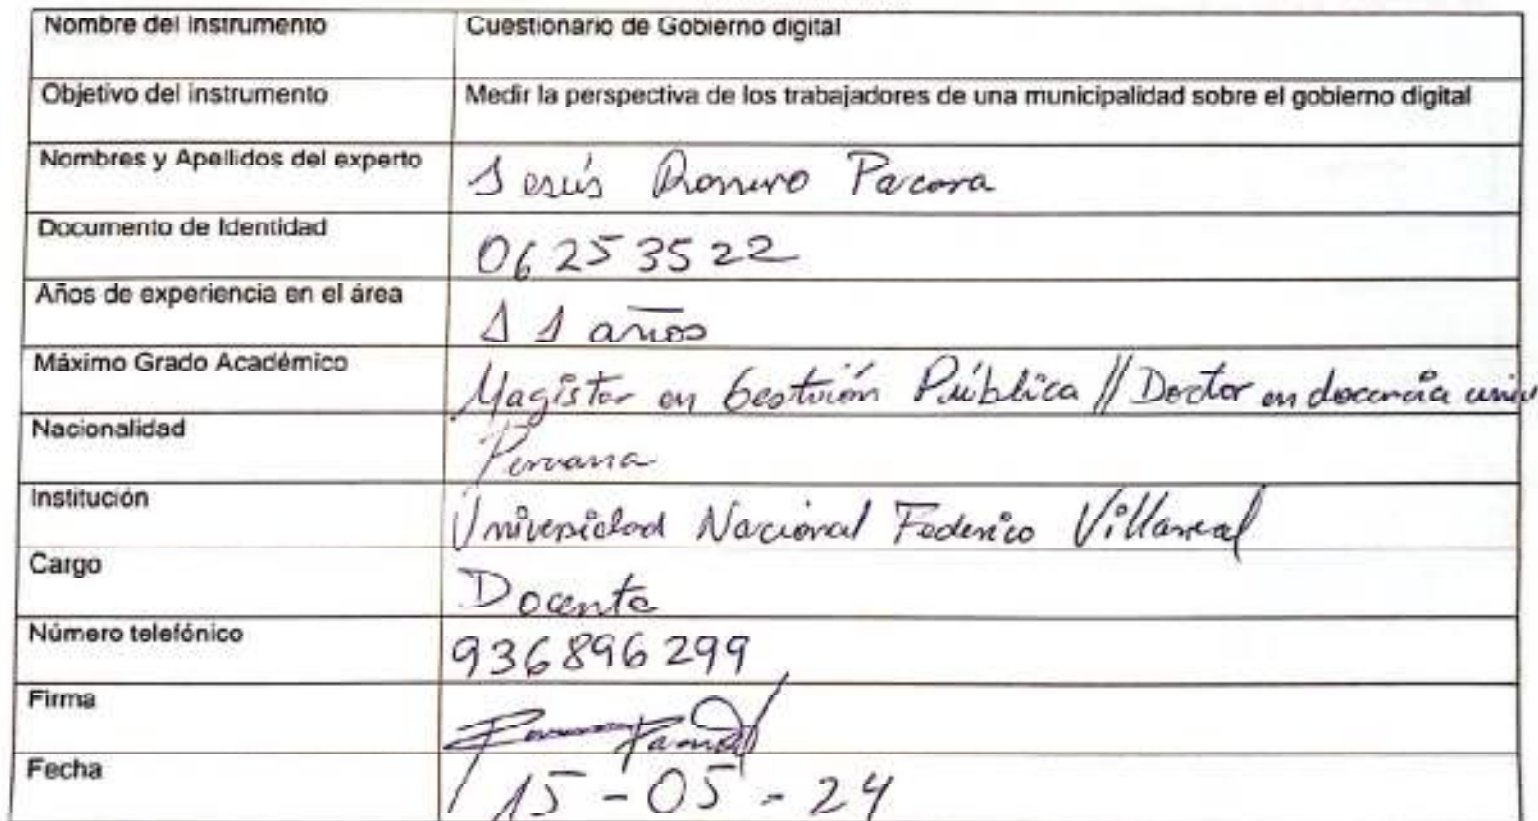 Nombre del Instrumento Cuestionario de Gobierno digital
Objetivo del instrumento Medir la perspectiva de los trabajadores de una municipalidad sobre el gobierno digital
Nombres y Apellidos del experto Jesús Romero Pacora
Documento de Identidad 06253522
Años de experiencia en el área 11 años
Máximo Grado Académico Magister en Gestión Pública // Doctor en docencia univ
Nacionalidad Peruana
Institución Universidad Nacional Federico Villarreal
Cargo Docente
Número telefónico 936896299
Firma
Fecha 15-05-24